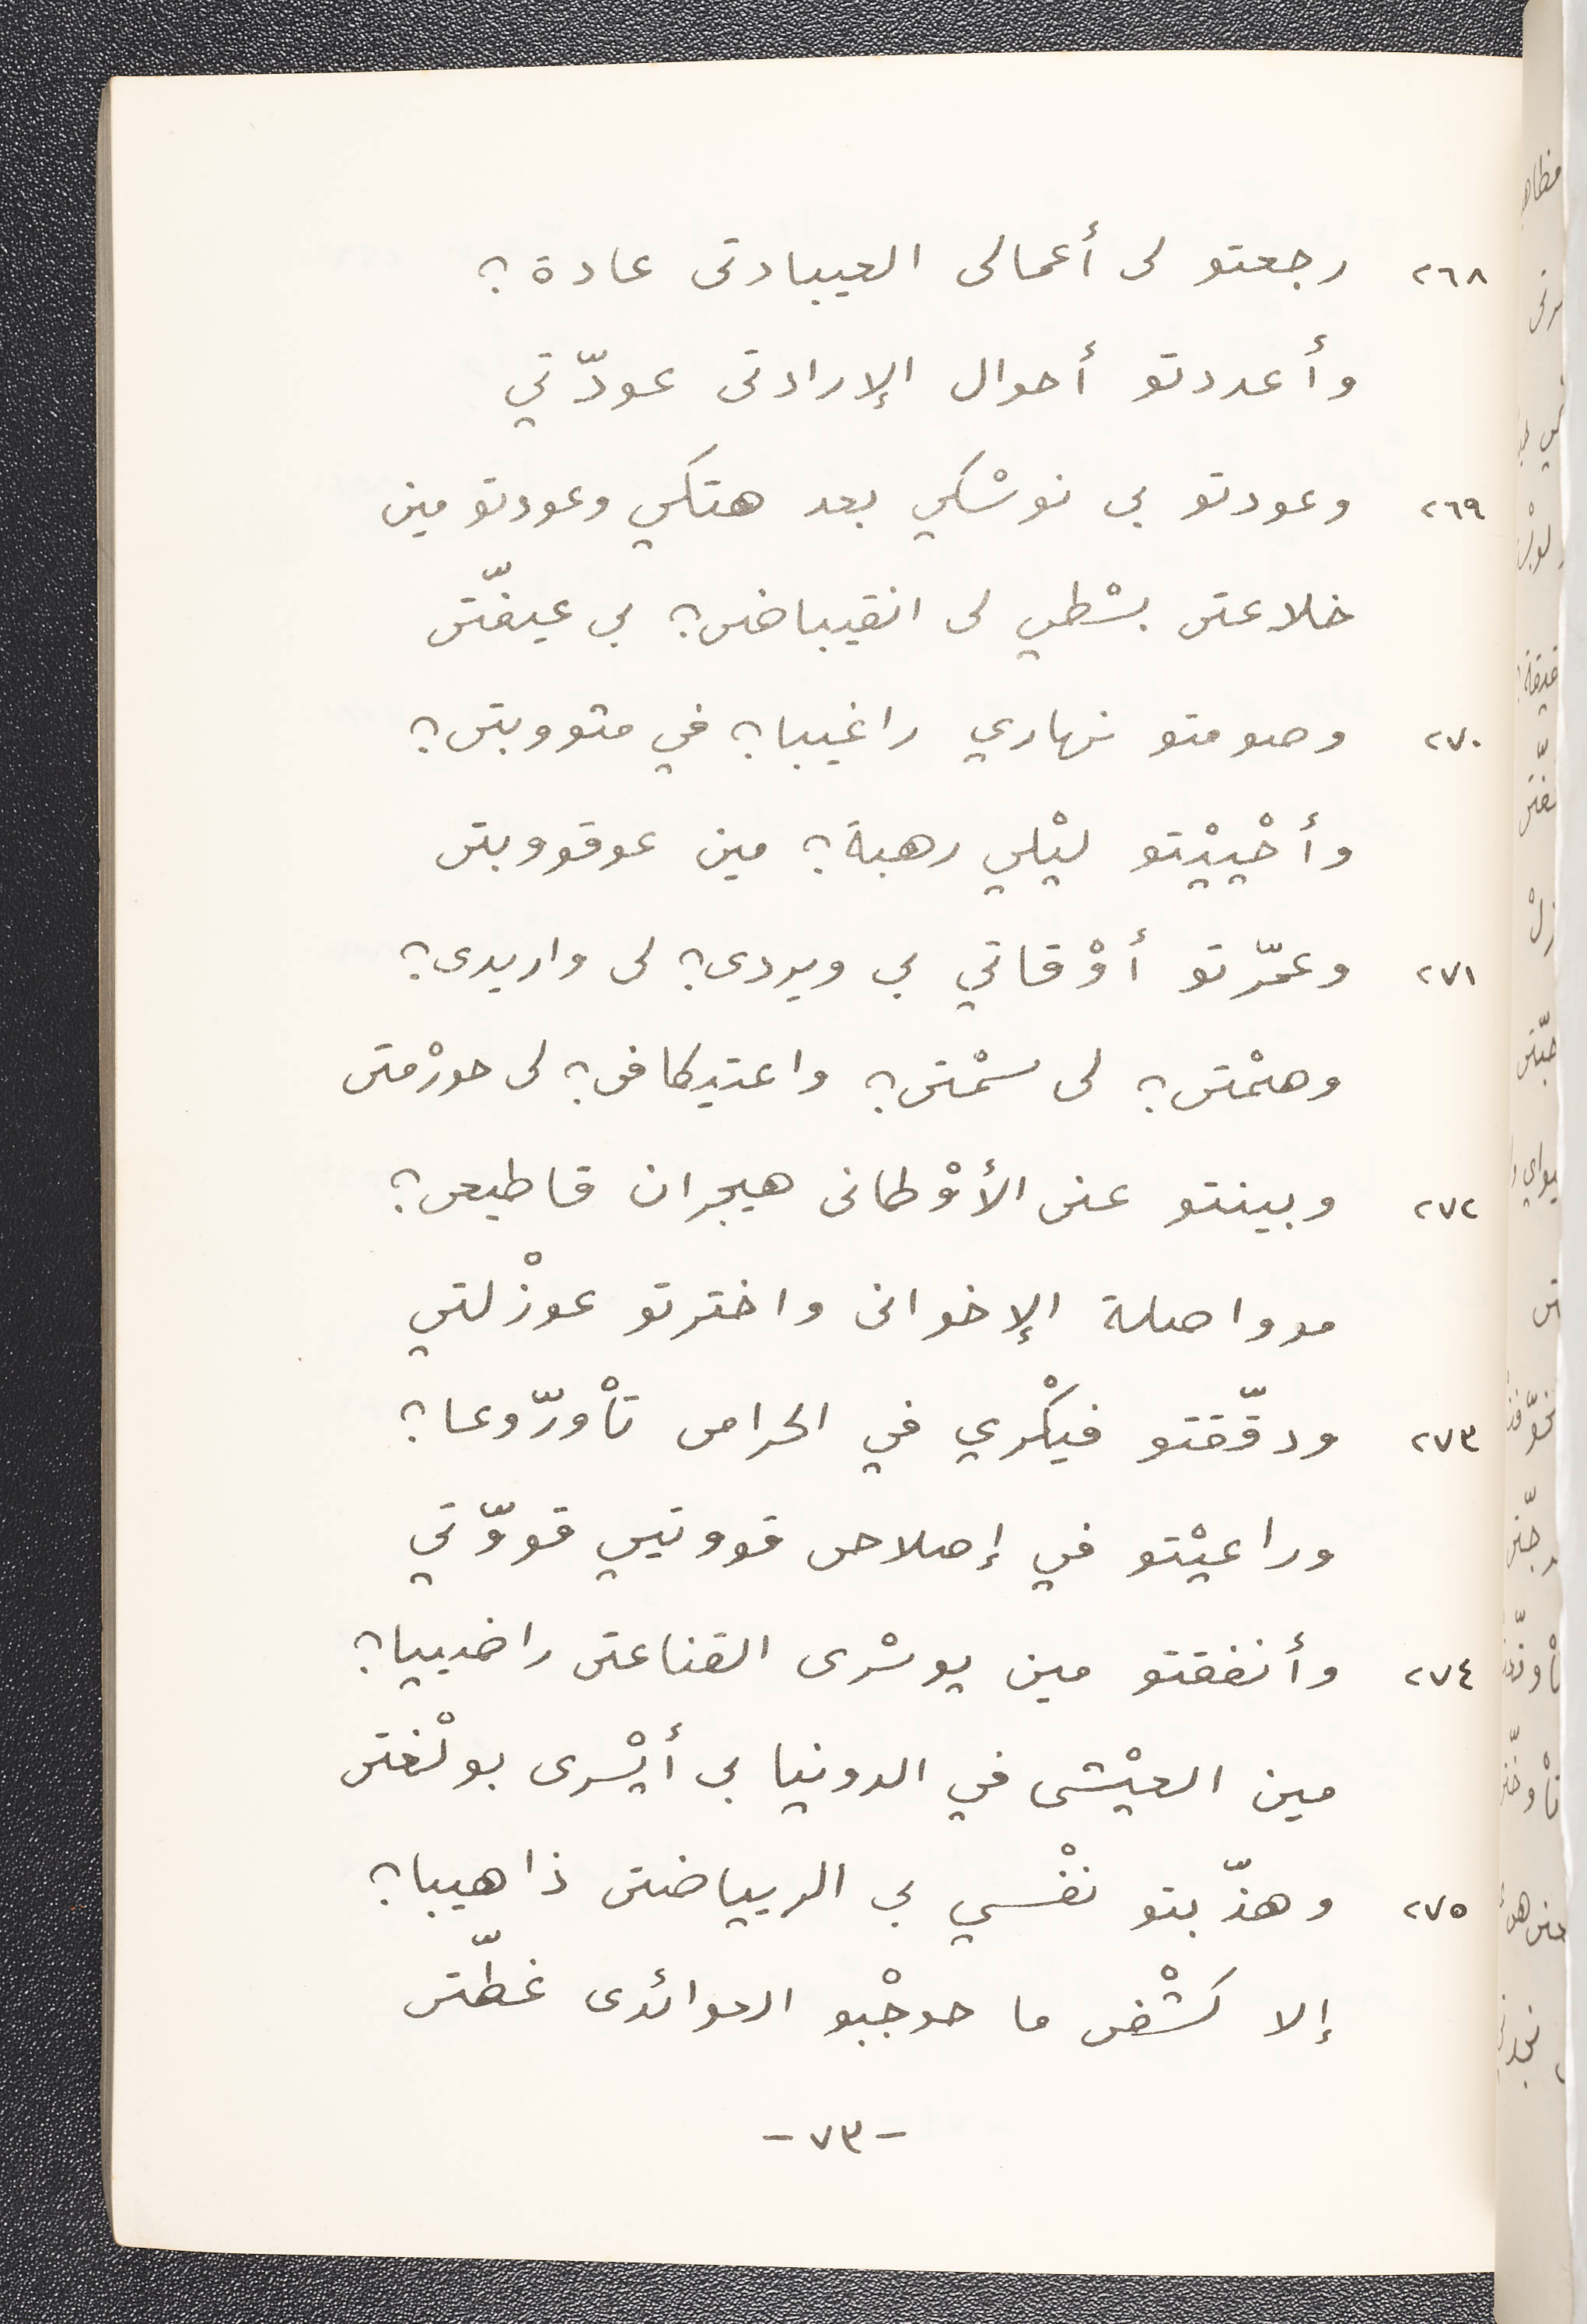 ٢٦٨ رجعتو لى أعمالى العيبادتى عادة؟
وأعددتو أحوال الإرادتى عودّتي
٢٦٩ وعودتو بى نوسْكي بعد هتكي وعودتو مين
خلاعتى بسْطي لى انقيباضى؟ بى عيفّتى
٢٧٠ وصومتو نهاري راغيبا؟ في مثووبتى؟
وأحْييْتو ليْلي رهبة؟ مين عوقووبتى
٢٧١ وعمّرتو أوْقاتي بى ويردى؟ لى واريدى؟
وصمْتى؟ لى سمْتى؟ واعتيكافى؟ لى حورْمتى
٢٧٢ وبينتو عنى الأوْطانى هيجران قاطيعى؟
موواصلة الإخوانى واخترتو عوزْلتي
٢٧٣ ودقّقتو فيكْري في الحرامى تأْورّوعا؟
وراعيْتو في إصلاحى قووتيي قووّتي
٢٧٤ وأنفقتو مين يوسْرى القناعتى راضييا؟
مين العيْشى في الدونيا بى أيْسرى بولْغتى
٢٧٥ وهذّبتو نفْسي بى الرييياضتى ذاهيبا؟
إلا كشْفى ما حوجْبو العوائدى غطّتى
-٧٣-